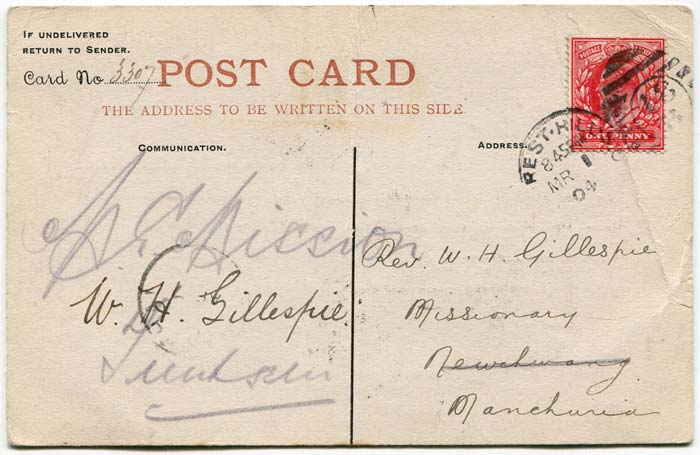 IF UNDELIVERED
RETURN TO SENDER.
Card No 3307
POST CARD
THE ADDRESS TO BE WRITTEN ON THIS SIDE.
COMMUNICATION.
ADDRESS.
POSTAGE
ONE PENNY
8 45 PM
MR 1
04
Mission
W. H. Gillespie
Rev. W. H Gillespie
Missionary
Newchwang
Manchuria